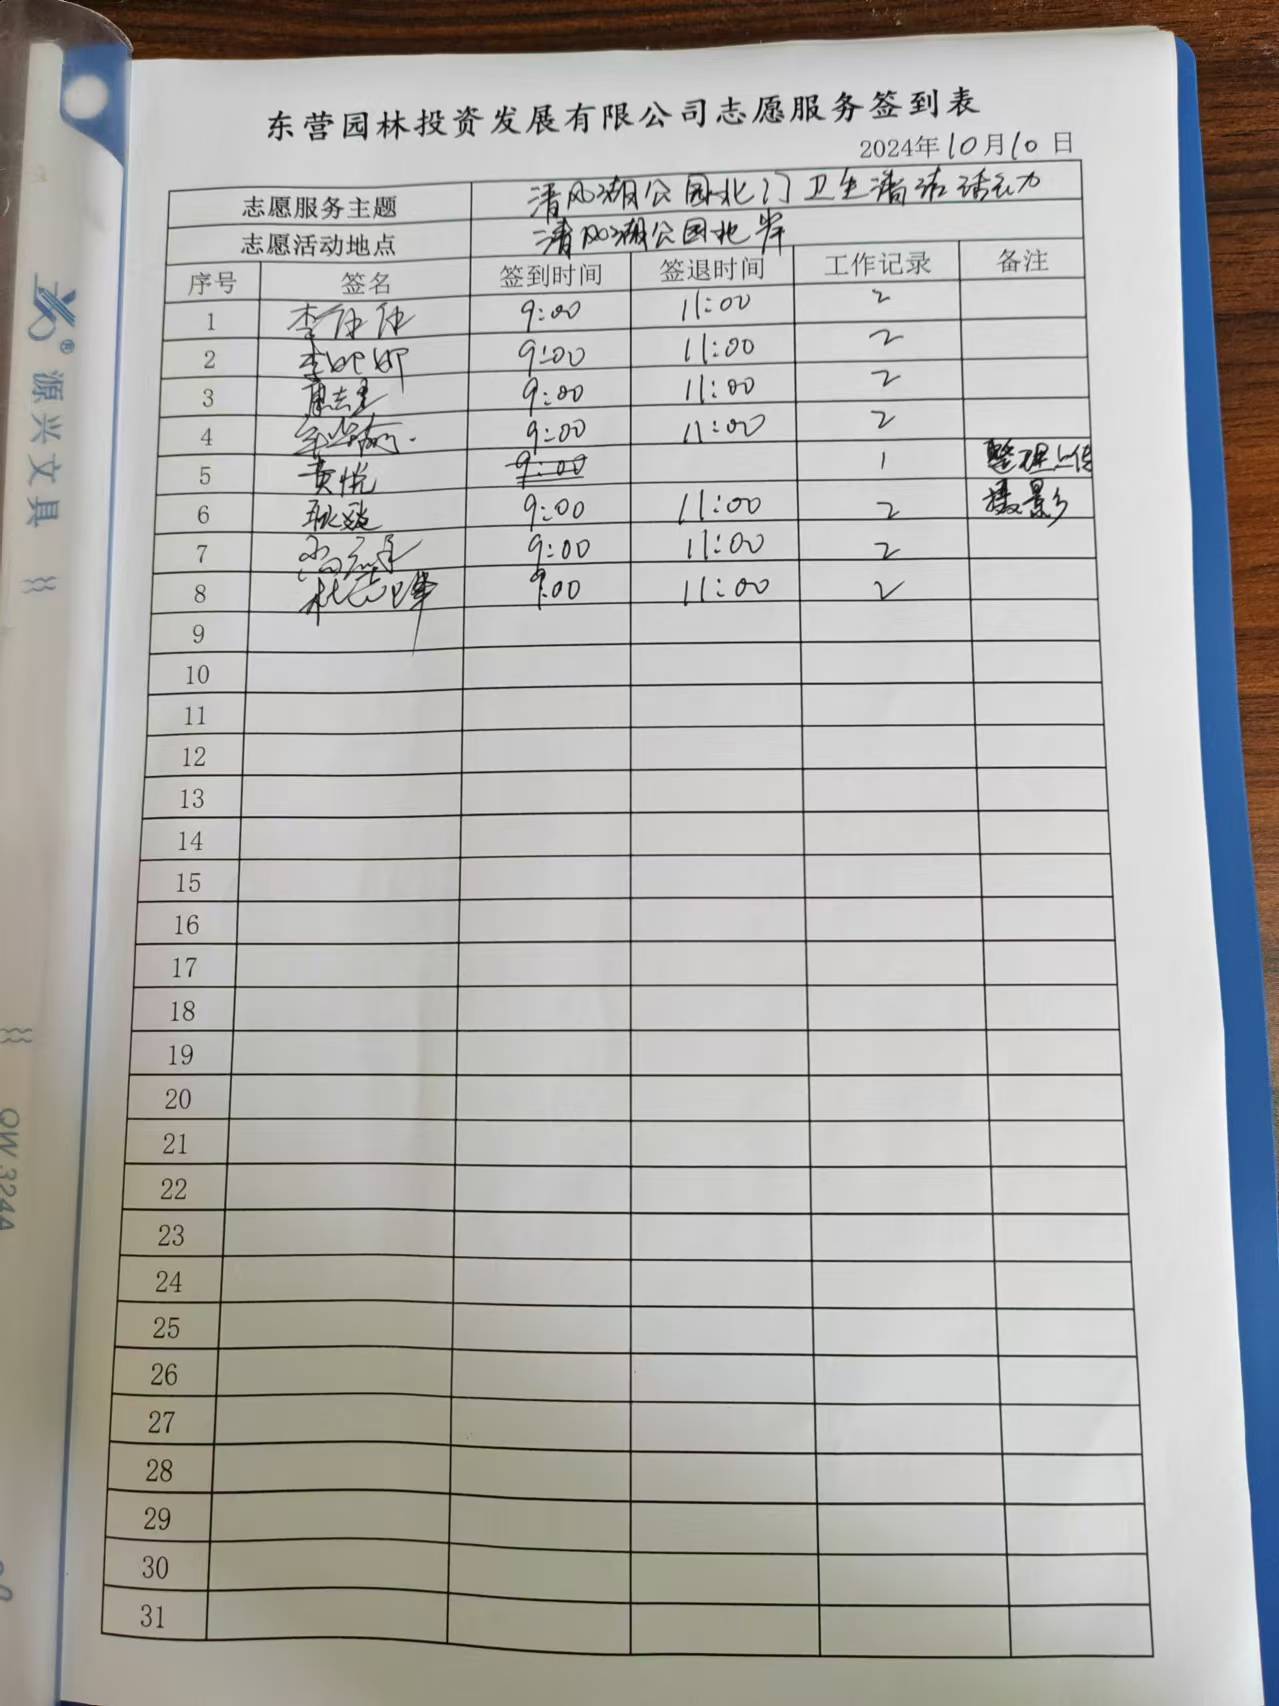 东营园林投资发展有限公司志愿服务签到表
2024年10月10日
志愿服务主题 清风湖公园北门卫生清洁活动
志愿活动地点 清风湖公园北岸
序号 签名 签到时间 签退时间 工作记录 备注
1 李 9:00 11:00 2
2 李 9:00 11:00 2
3 9:00 11:00 2
4 9:00 11:00 2
5 黄悦 9:00 1 整理上传
6 9:00 11:00 2 摄影
7 9:00 11:00 2
8 杜志峰 9:00 11:00 2
9
10
11
12
13
14
15
16
17
18
19
20
21
22
23
24
25
26
27
28
29
30
31
®源兴文具
QW324A